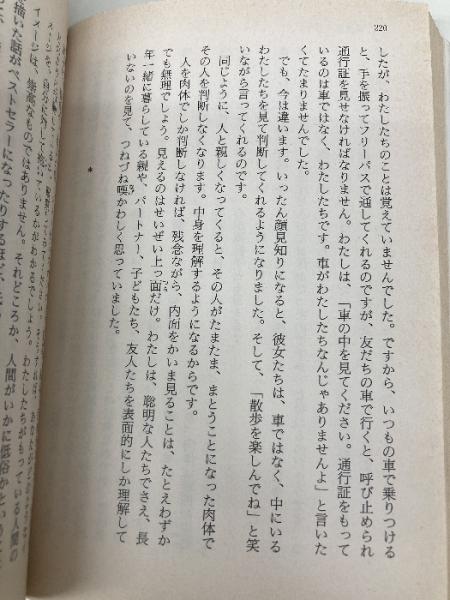 220
したが、わたしたちのことは覚えていませんでした。ですから、いつもの車で乗りつける
と、手を振ってフリーパスで通してくれるのですが、友だちの車で行くと、呼び止められ
通行証を見せなければなりません。わたしは、「車の中を見てください。通行証をもって
いるのは車ではなく、わたしたちです。車がわたしたちなんじゃありませんよ」と言いた
くてたまりませんでした。
でも、今は違います。いったん顔見知りになると、彼女たちは、車ではなく、中にいる
わたしたちを見て判断してくれるようになりました。そして、「散歩を楽しんでね」と笑
いながら言ってくれるのです。
同じように、人と親しくなってくると、その人がたまたま、まとうことになった肉体で
その人を判断しなくなります。中身を理解するようになるからです。
人を肉体でしか判断しなければ、残念ながら、内面をかいま見ることは、たとえわずか
でも無理でしょう。見えるのはせいぜい上っ面だけ。わたしは、聡明な人たちでさえ、長
年一緒に暮らしている親や、パートナー、子どもたち、友人たちを表面的にしか理解して
いないのを見て、つねづね嘆かわしく思っていました。
*
イメージは、崇高なものではありません。それどころか、人間がいかに低俗かという
描いた話がベストセラーになったりするほど